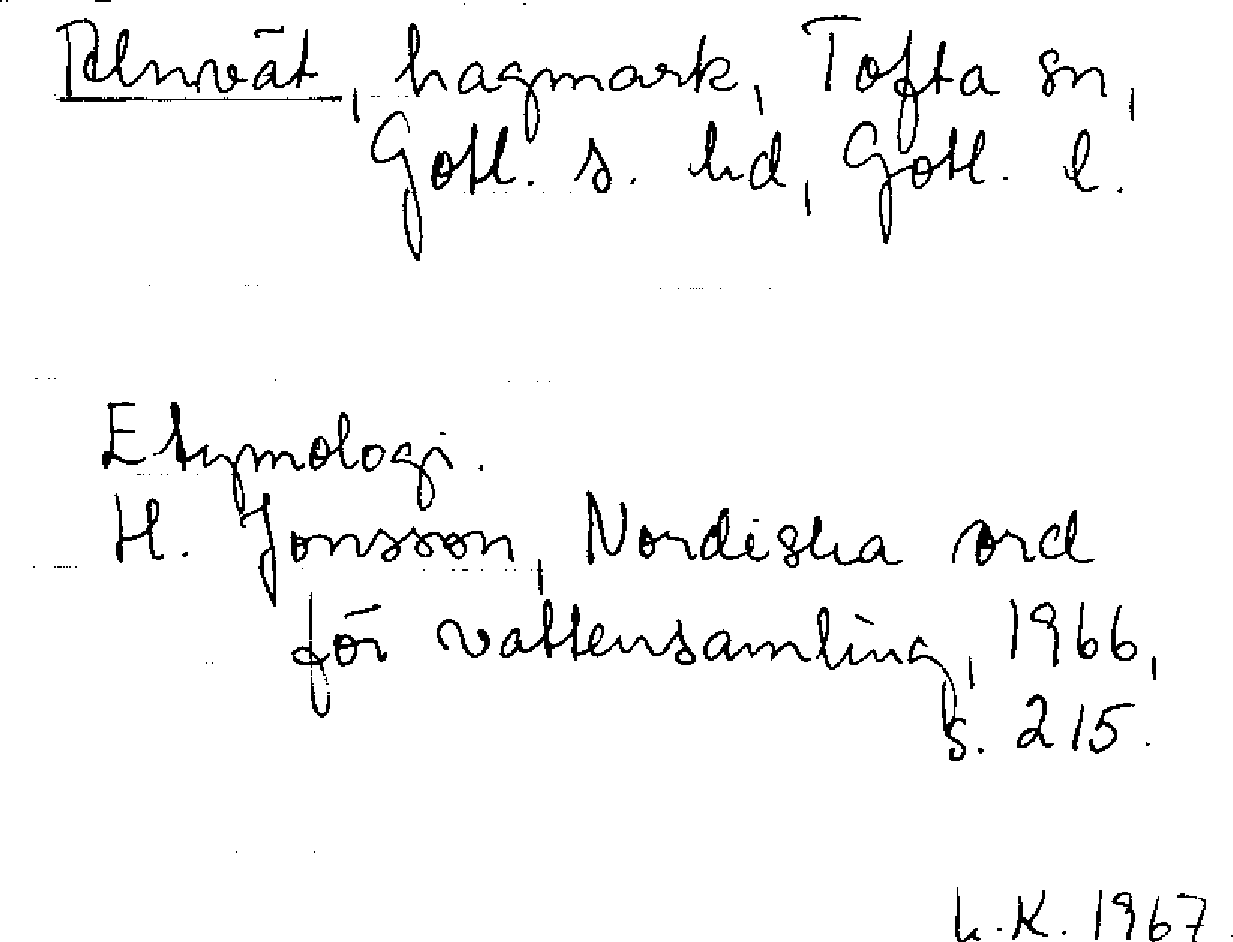 , hagmark, Tofta sn,
Gotl. s. hd, Gotl. l.
Etymologi.
H. Jonsson, Nordiska ord
för vattensamling, 1966,
s. 215.
L.K. 1967.